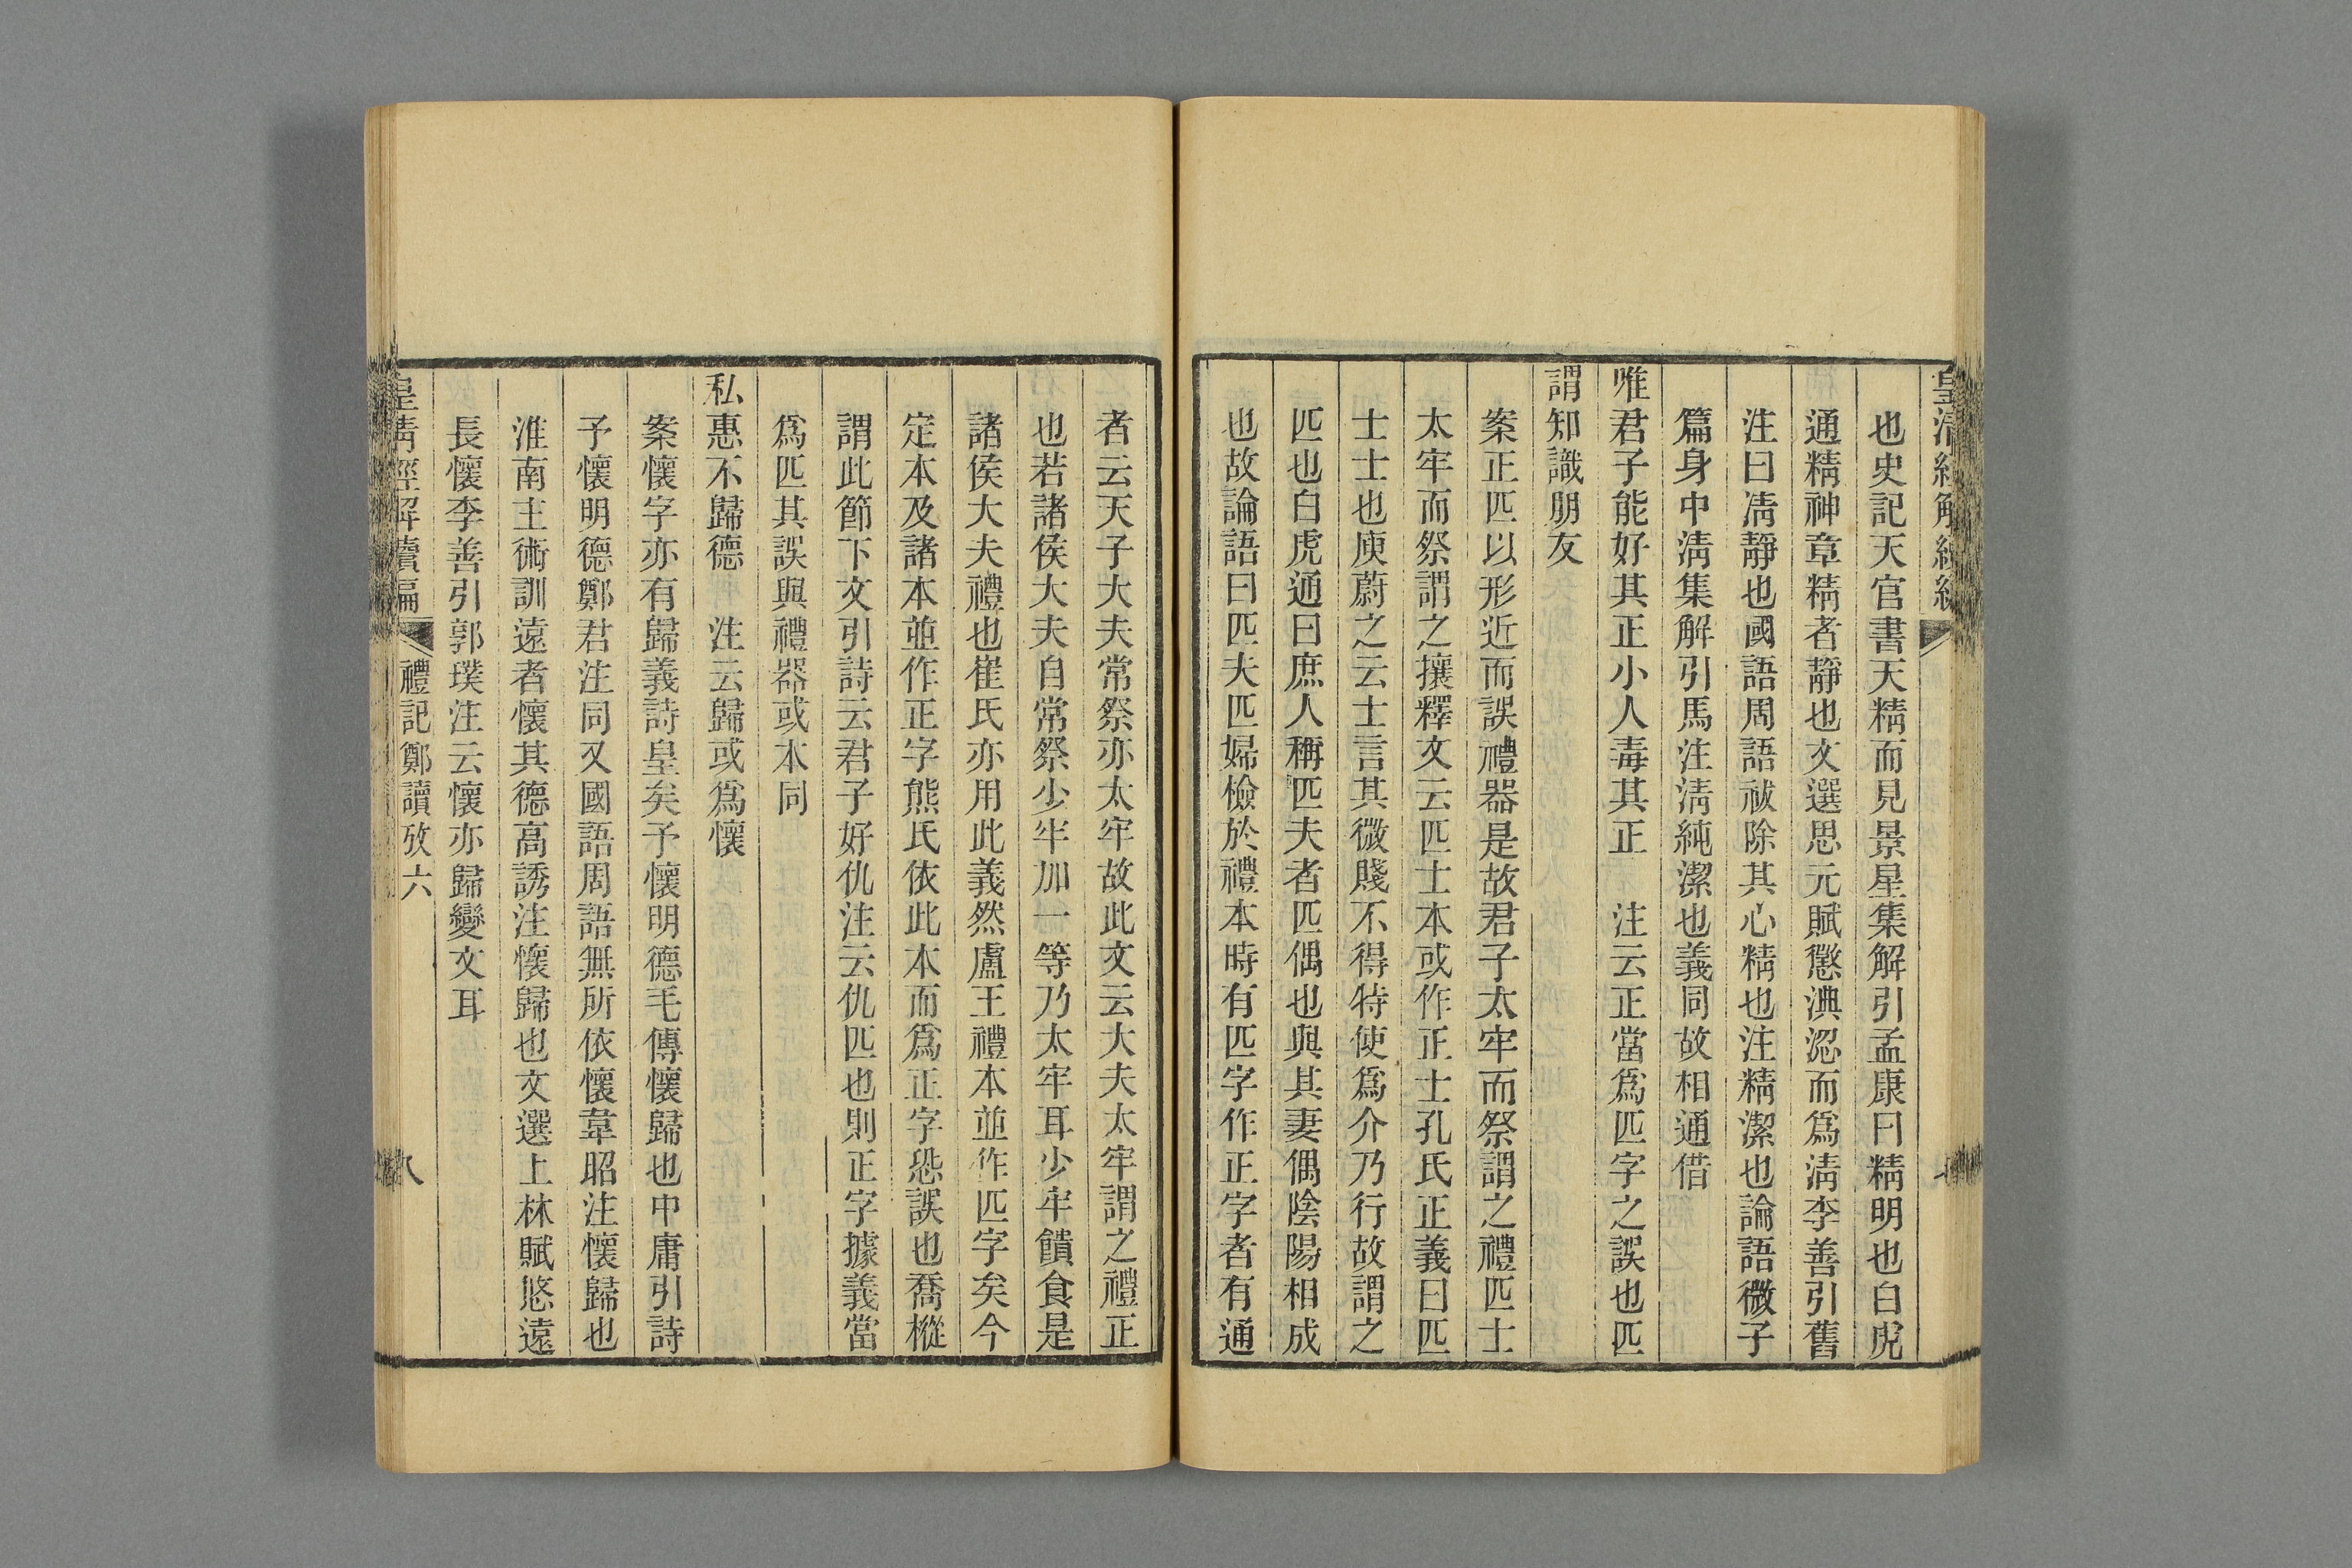 皇清經解續編
也史記天官書天精而見景星集解引孟康曰精明也白虎
通精神章精者靜也文選思元賦懲淟涊而爲淸李善引舊
注曰淸靜也國語周語祓除其心精也注精潔也論語微子
篇身中淸集解引馬注淸純潔也義同故相通借
唯君子能好其正小人毒其正　注云正當爲匹字之誤也匹
謂知識朋友
案正匹以形近而誤禮器是故君子太牢而祭謂之禮匹士
太牢而祭謂之攘釋文云匹士本或作正士孔氏正義曰匹
士士也庾蔚之云士言其微賤不得特使爲介乃行故謂之
匹也白虎通曰庶人稱匹夫者匹偶也與其妻偶陰陽相成
也故論語曰匹夫匹婦檢於禮本時有匹字作正字者有通
者云天子大夫常祭亦太牢故此文云大夫太牢謂之禮正
也若諸侯大夫自常祭少牢加一等乃太牢耳少牢饋食是
諸侯大夫禮也崔氏亦用此義然盧王禮本並作匹字矣今
定本及諸本並作正字熊氏依此本而爲正字恐誤也喬樅
謂此節下文引詩云君子好仇注云仇匹也則正字據義當
爲匹其誤與禮器或本同
私惠不歸德　注云歸或爲懷
案懷字亦有歸義詩皇矣予懷明德毛傳懷歸也中庸引詩
予懷明德鄭君注同又國語周語無所依懷韋昭注懷歸也
淮南主術訓遠者懷其德高誘注懷歸也文選上林賦悠遠
長懷李善引郭璞注云懷亦歸變文耳
皇淸經解續編　禮記鄭讀攷六　八